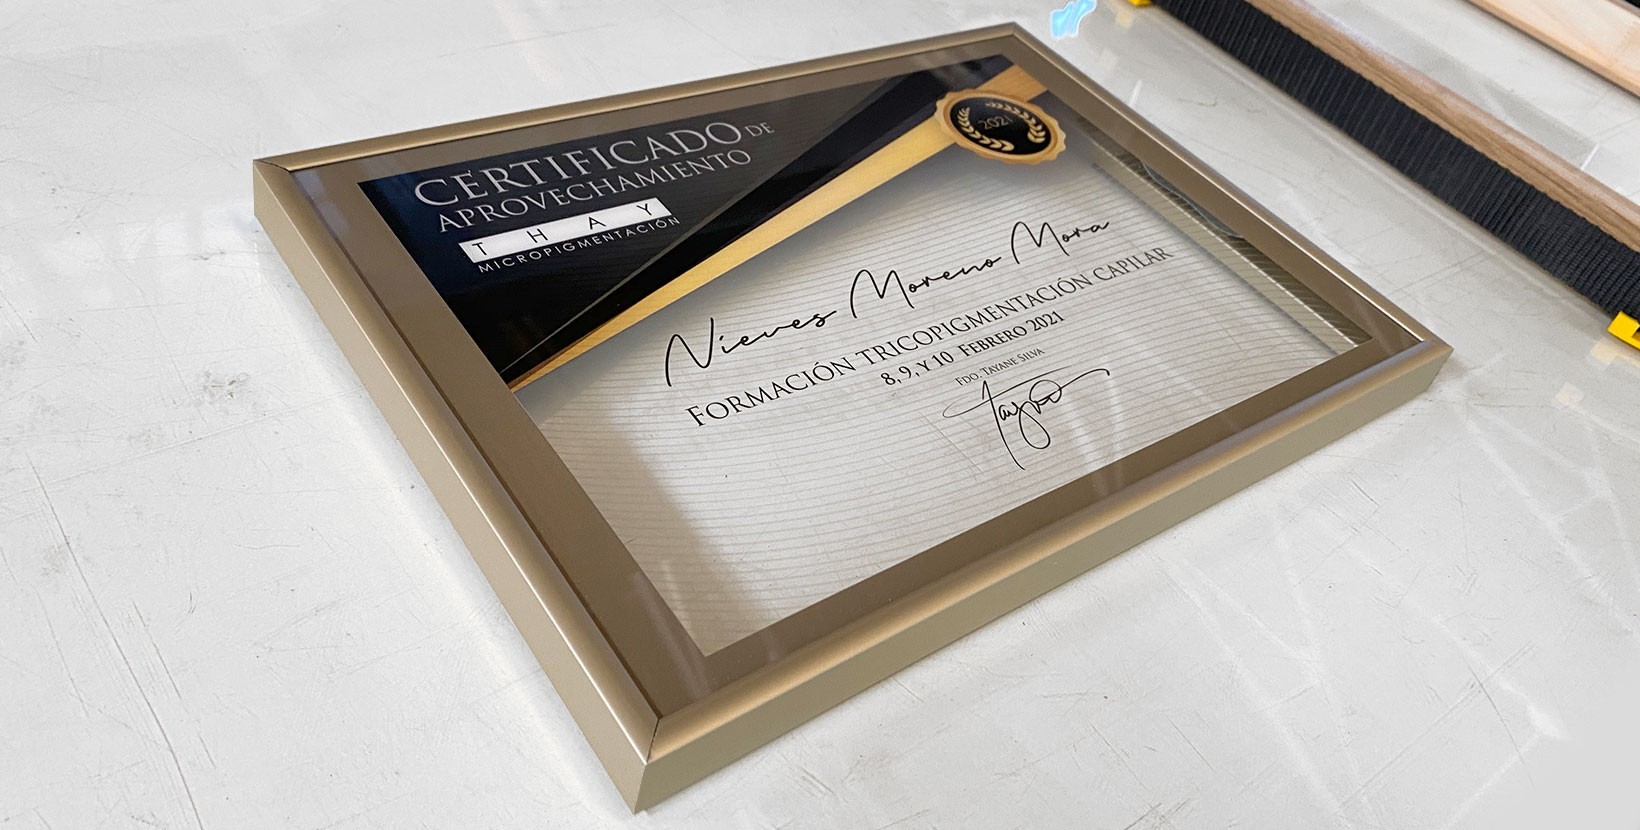 CERTIFICADO DE
APROVECHAMIENTO
THAY
MICROPIGMENTACIÓN
2021
Nieves Moreno Mora
FORMACIÓN TRICOPIGMENTACIÓN CAPILAR
8, 9, Y 10 FEBRERO 2021
FDO. TAYANE SILVA